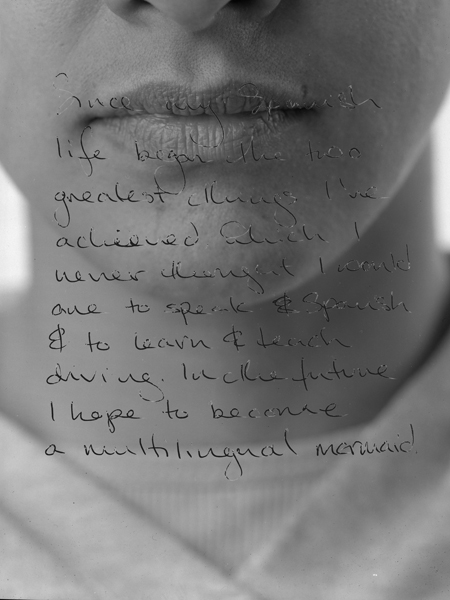 Since my Spanish
life began the two
greatest things I've
achieved which I
never thought I would
are to speak & Spanish
& to learn & teach
diving. In the future
I hope to become
a multilingual mermaid.